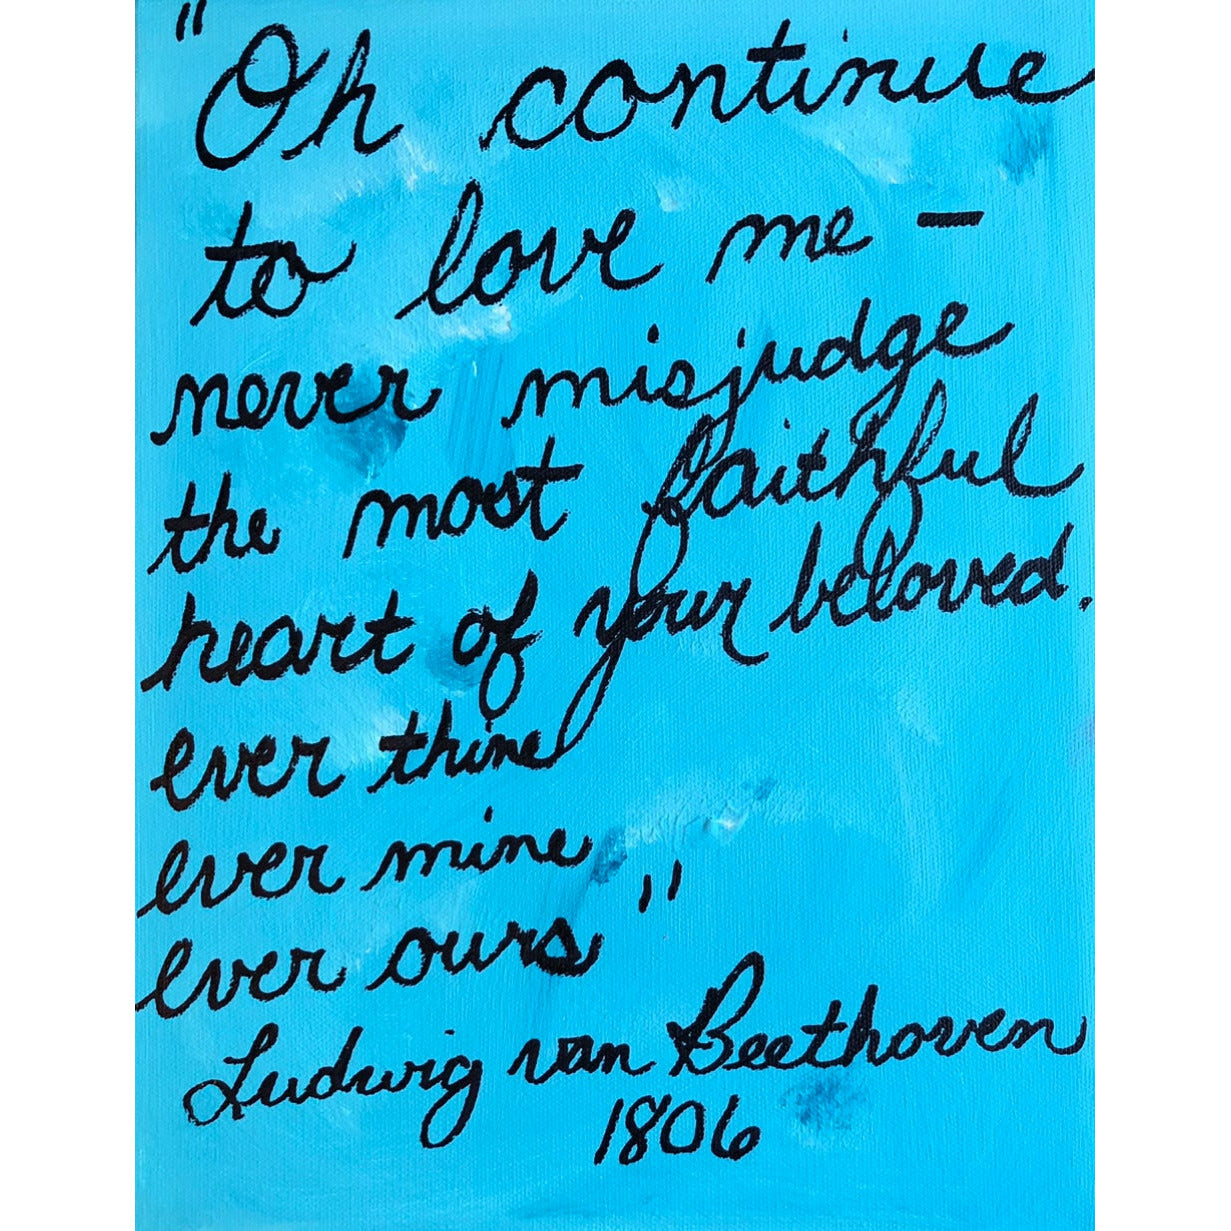 "Oh continue
to love me –
never misjudge
the most faithful
heart of your beloved.
ever thine
ever mine
ever ours"
Ludwig van Beethoven
1806